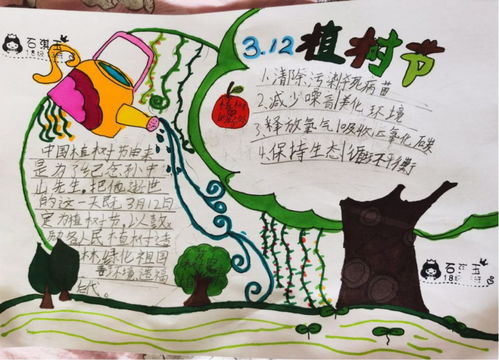 3.12植树节
1.清除污染杀死病苗
2.减少噪音美化环境
3.释放氧气吸收二氧化碳
4.保持生态平衡
中国植树节由来
是为了纪念孙中
山先生,把他逝世
的这一天既3月12日
定为植树节,以鼓
励各人民植树造
林,绿化祖国
环境,造福
后代。